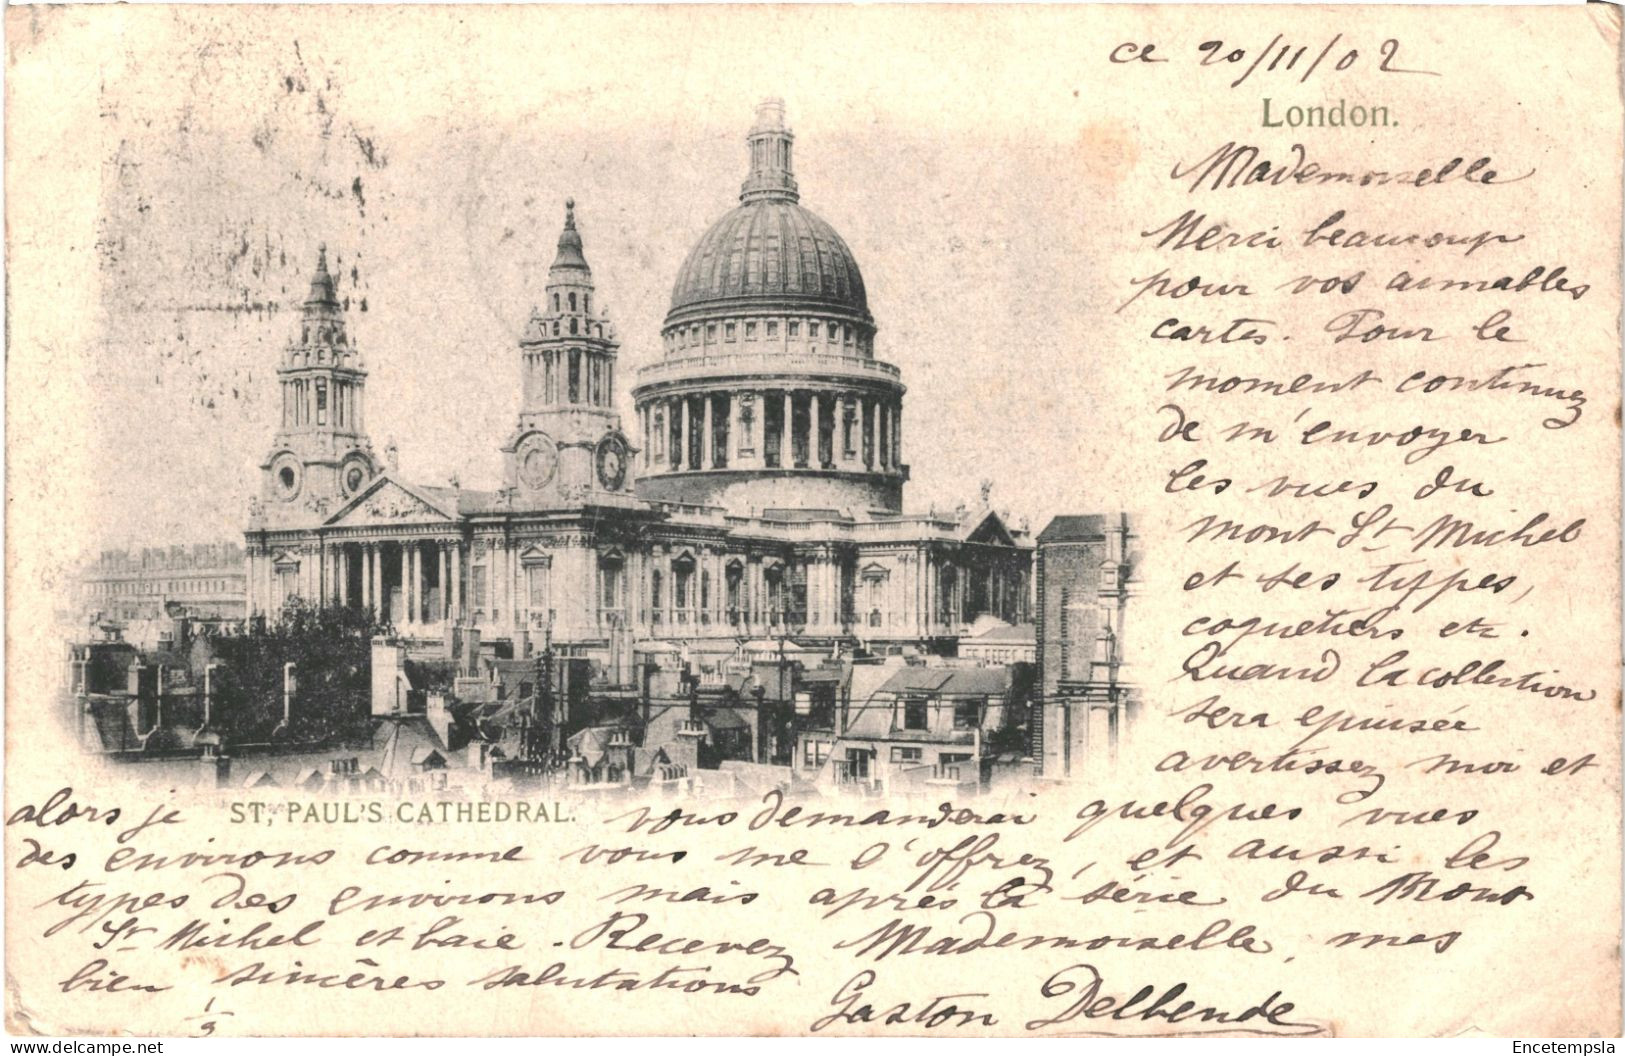 ce 20/11/02
London.
Mademoiselle
Merci beaucoup
pour vos aimables
cartes. Pour le
moment continuez
de m'envoyer
les vues du
mont St Michel
et ses types,
coquetiers etc.
Quand la collection
sera epuisée
avertissez moi et
alors je
ST, PAUL'S CATHEDRAL.
vous demanderai quelques vues
des environs comme vous me l'offrez, et aussi les
types des environs mais après la série du Mont
St Michel et baie. Recevez Mademoiselle, mes
bien sincères salutations
Gaston Delbende
www.delcampe.net
Encetempsla